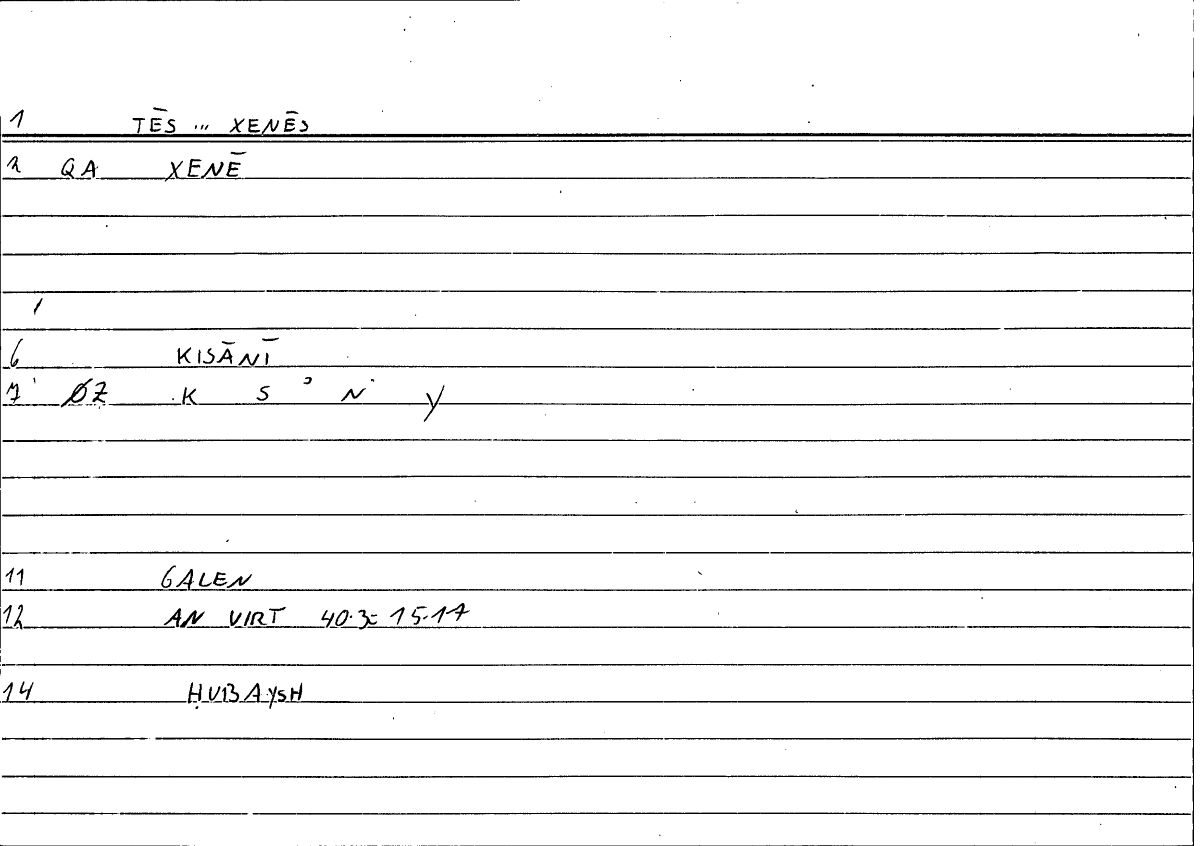 1 TĒS ... XENĒS
2 QA XENĒ
6 KISĀNĪ
7 ØZ K S ʾ N Y
11 GALEN
12 AN VIRT 40.3 = 15.17
14 ḤUBAYSH